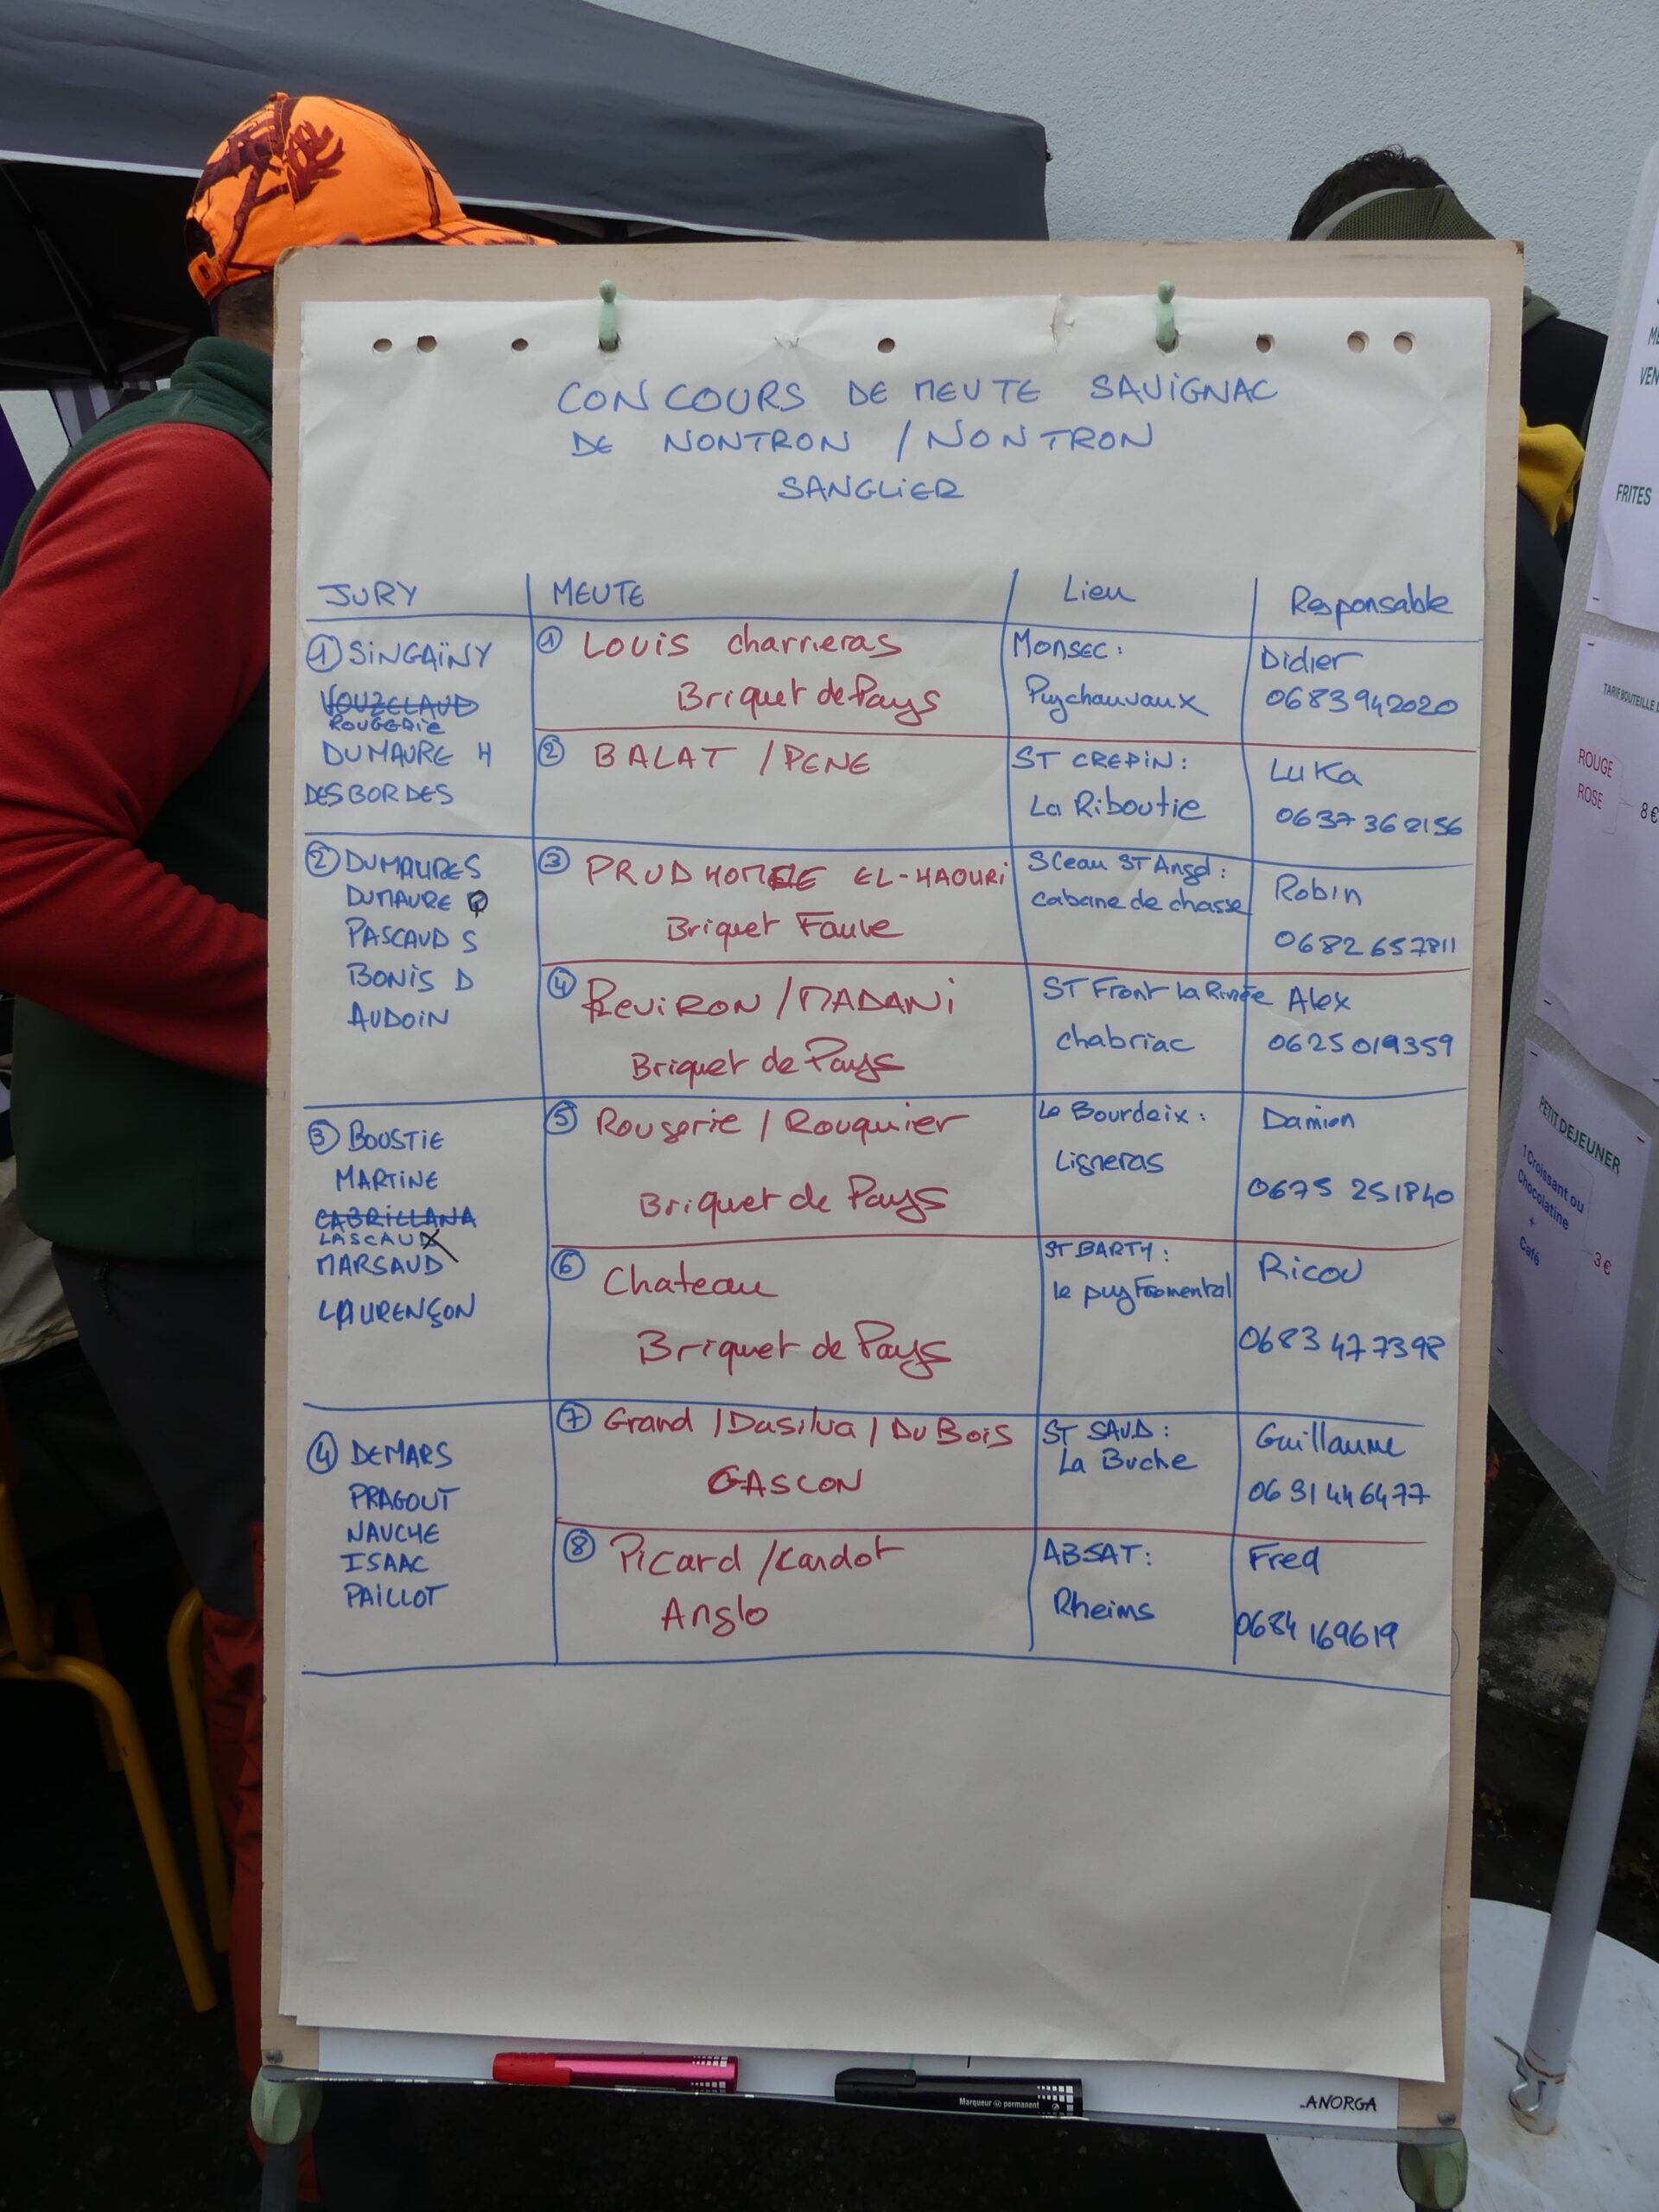 CONCOURS DE MEUTE SAVIGNAC
DE NONTRON / NONTRON
SANGLIER
JURY MEUTE Lieu Responsable
① SiNGAÏNY
VOUZELAUD
ROUGERIE
DUMAURE H
DESBORDES
① Louis charrieras
Briquet de Pays
Monsec :
Puychauvaux
Didier
0683942020
② BALAT / PENE
ST CREPIN :
La Riboutie
Luka
0637 362156
② DUMAURE S
DUMAURE
PASCAUD S
BONIS D
AUDOIN
③ PRUDHOMME EL-HAOURI
Briquet Fauve
SCeau ST Angel :
cabane de chasse
Robin
0682 657811
④ REVIRON / MADANI
Briquet de Pays
ST Front la Rivière
chabriac
Alex
0625019359
③ BOUSTIE
MARTINE
CABRILLANA
LASCAUX
MARSAUD
LAURENÇON
⑤ Rougerie / Rouquier
Briquet de Pays
Le Bourdeix :
Ligneras
Damien
0675 251840
⑥ Chateau
Briquet de Pays
ST BARTH :
le puy Fromental
Ricou
0683 477398
④ DEMARS
PRAGOUT
NAUCHE
ISAAC
PAILLOT
⑦ Grand / Dasilva / DuBois
GASCON
ST SAUD :
La Buche
Guillaume
06 31446477
⑧ Picard / Kardot
Anglo
ABSAT :
Rheims
Fred
0684 169619
Marqueur permanent
ANORGA
VEN
FRITES
TARIF BOUTEILLE
ROUGE
ROSE
8 €
PETIT DEJEUNER
1 Croissant ou
Chocolatine
+
Café
3 €